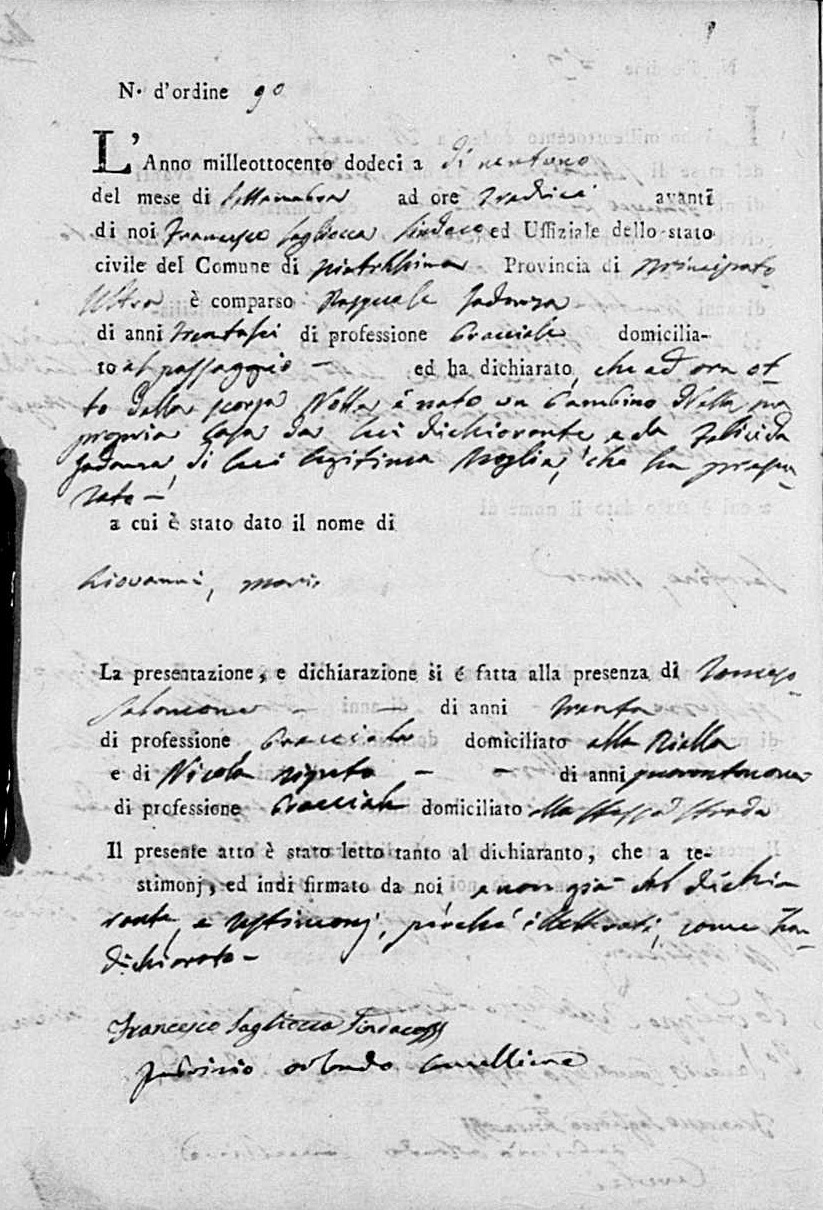 N. d'ordine 90
L'Anno milleottocento dodeci a di ventuno
del mese di Settembre ad ore tredici avanti
di noi Francesco Sagliocca Sindaco ed Uffiziale dello stato
civile del Comune di Provincia di Principato
Ultra è comparso Pasquale Iadanza
di anni trentasei di professione Bracciale domicilia-
to al passaggio – ed ha dichiarato, che ad ora ot-
to della scorsa Notte è nato un bambino nella
propria Casa da lui dichiarante, e da Felicida
Iadanza, di lui legitima Moglie, che ha presen-
tato –
a cui è stato dato il nome di
Giovanni, Maria
La presentazione, e dichiarazione si é fatta alla presenza di Tomaso
Salomone – – di anni trenta
di professione Bracciale domiciliato alla Riella
e di Nicola – – di anni quarantanove
di professione Bracciale domiciliato alla stessa strada
Il presente atto è stato letto tanto al dichiaranto, che a te-
stimonj, ed indi firmato da noi, e non già dal dichia-
rante, e testimonj, perché illetterati, come han-
dichiarato –
Francesco Sagliocca Sindaco
Orlando Cancelliere